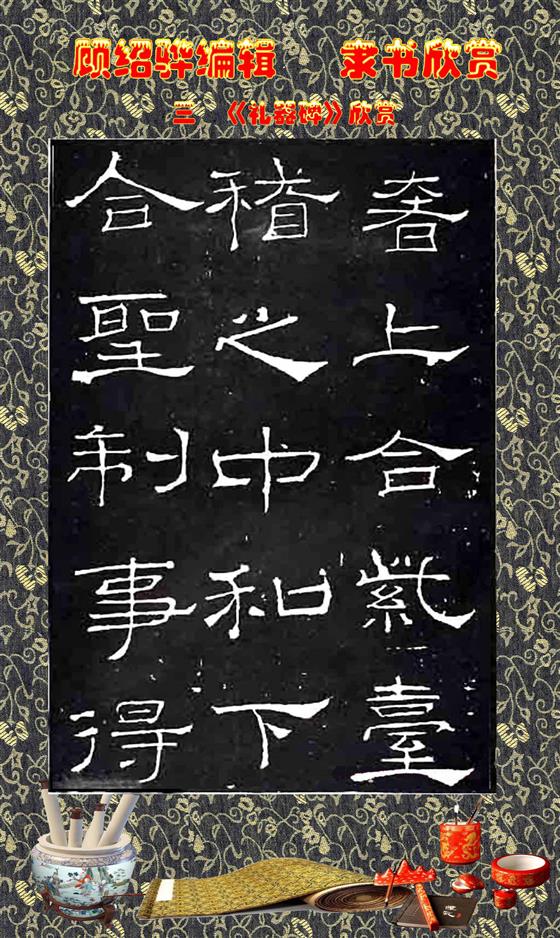 顾绍骅编辑 隶书欣赏
三 《礼器碑》欣赏
奢上合紫臺
稽之中和下
合聖制事得